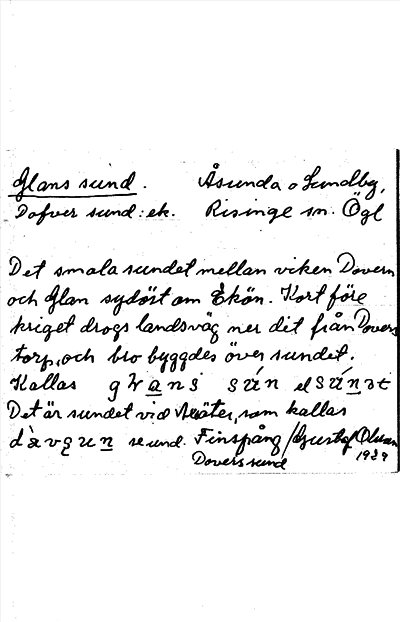 Glans sund. Åsunda o Sundby,
Dofver sund: ek. Risinge sn. Ögl
Det smala sundet mellan viken Dovern
och Glan sydöst om Ekön. Kort före
kriget drogs landsväg ner dit från Dovers
torp, och bro byggdes över sundet.
Kallas sún el súnət
Det är sundet vid som kallas
se und. Finspång / Gustaf Olsson
Doverssund 1929